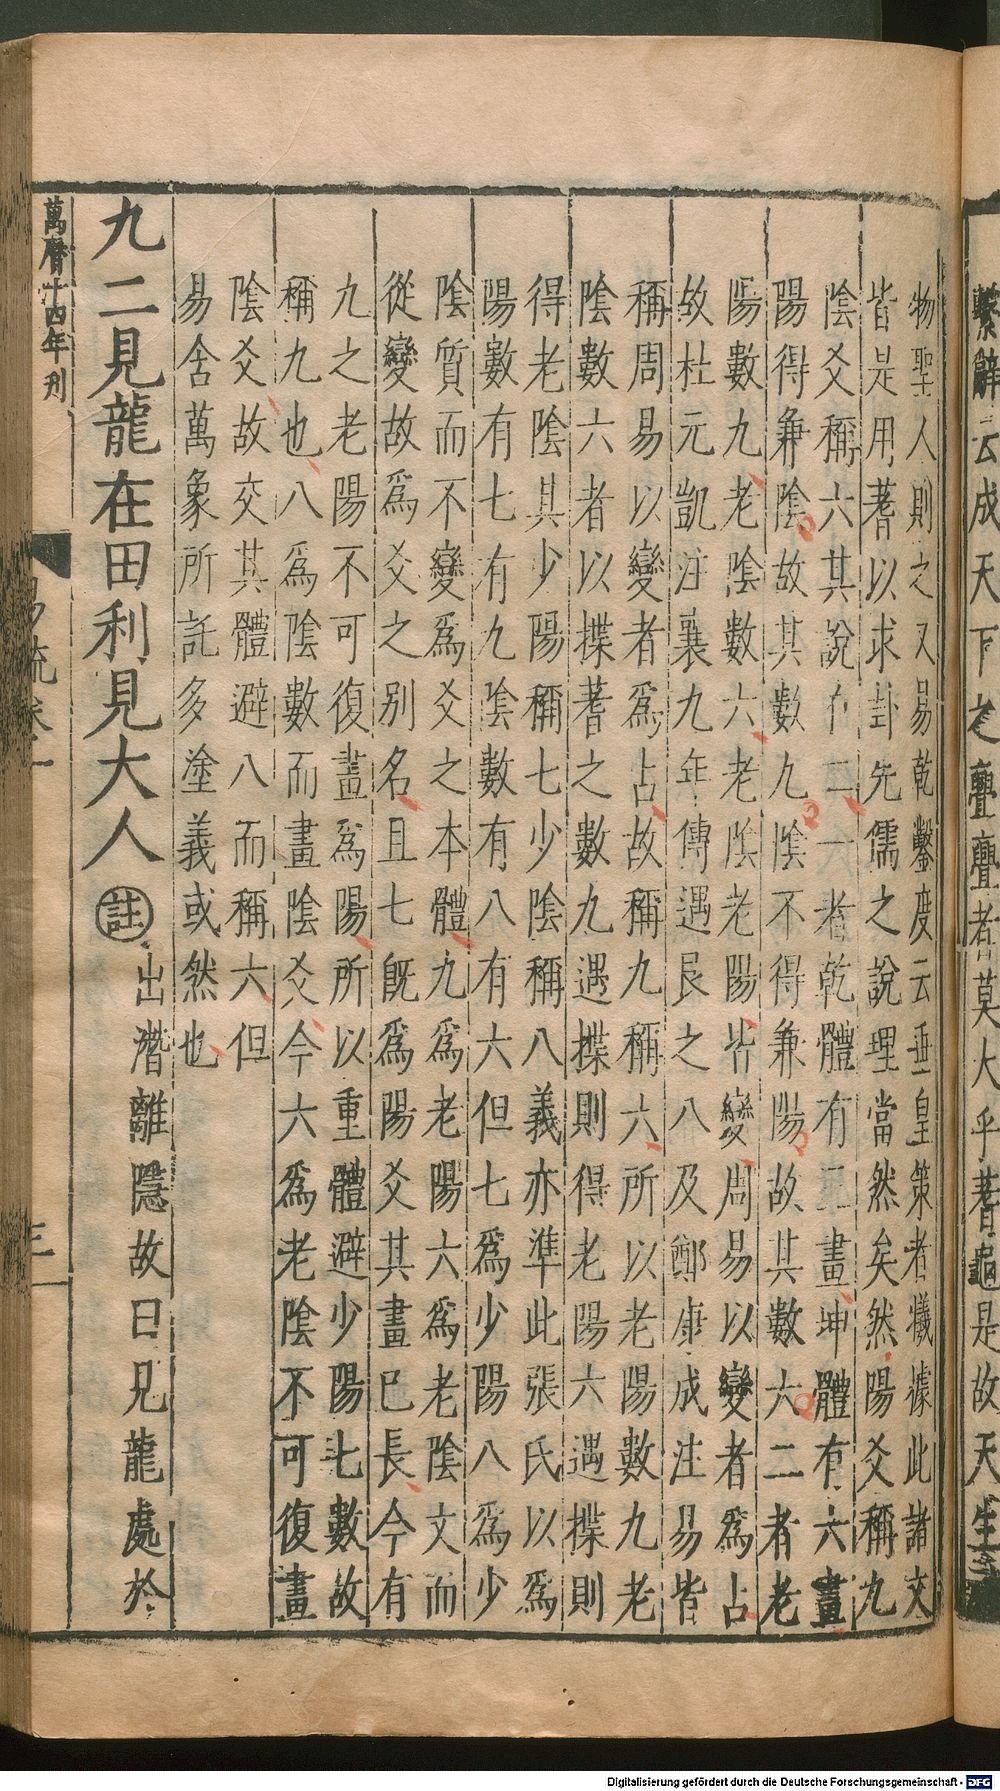 繫辭云成天下之亹亹者莫大乎蓍龜是故天生
物聖人則之又易乾鑿度云垂皇策者犧據此諸文
皆是用蓍以求卦先儒之說理當然矣然陽爻稱九
陰爻稱六其說有二一者乾體有三畫坤體有六畫
陽得兼陰故其數九陰不得兼陽故其數六二者老
陽數九老陰數六老陰老陽皆變周易以變者爲占
故杜元凱注襄九年傳遇艮之八及鄭康成注易皆
稱周易以變者爲占故稱九稱六所以老陽數九老
陰數六者以揲蓍之數九遇揲則得老陽六遇揲則
得老陰其少陽稱七少陰稱八義亦準此張氏以爲
陽數有七有九陰數有八有六但七爲少陽八爲少
陰質而不變爲爻之本體九爲老陽六爲老陰文而
從變故爲爻之别名且七既爲陽爻其畫已長今有
九之老陽不可復畫爲陽所以重體避少陽七數故
稱九也八爲陰數而畫陰爻今六爲老陰不可復畫
陰爻故交其體避八而稱六但
易含萬象所託多塗義或然也
九二見龍在田利見大人註出潛離隱故曰見龍處於
萬曆十四年刋
易疏卷一
三
Digitalisierung gefördert durch die Deutsche Forschungsgemeinschaft - DFG